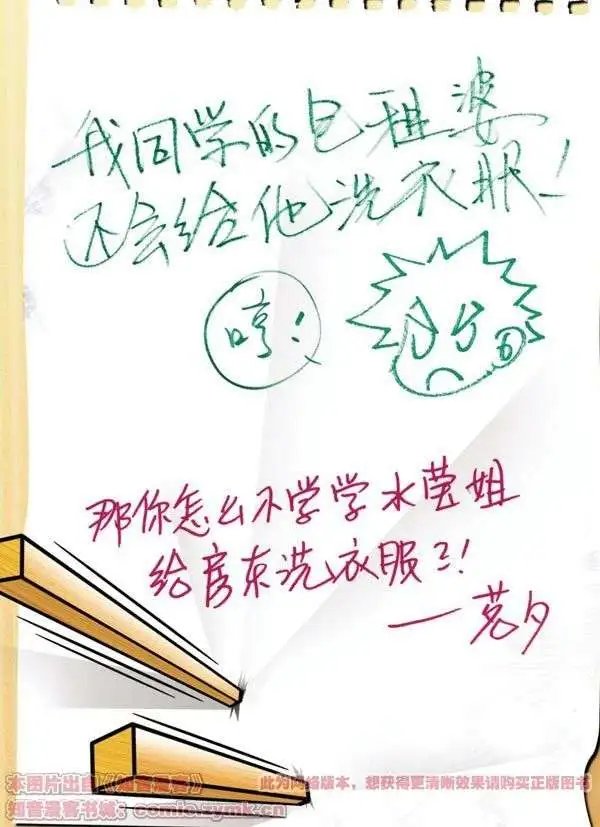 我同学的包租婆
还会给他洗衣服!
哼!
那你怎么不学学水莹姐
给房东洗衣服??!
—茗夕
本图片出自《知音漫客》
此为网络版本，想获得更清晰效果请购买正版图书
知音漫客书城：comic.zymk.cn